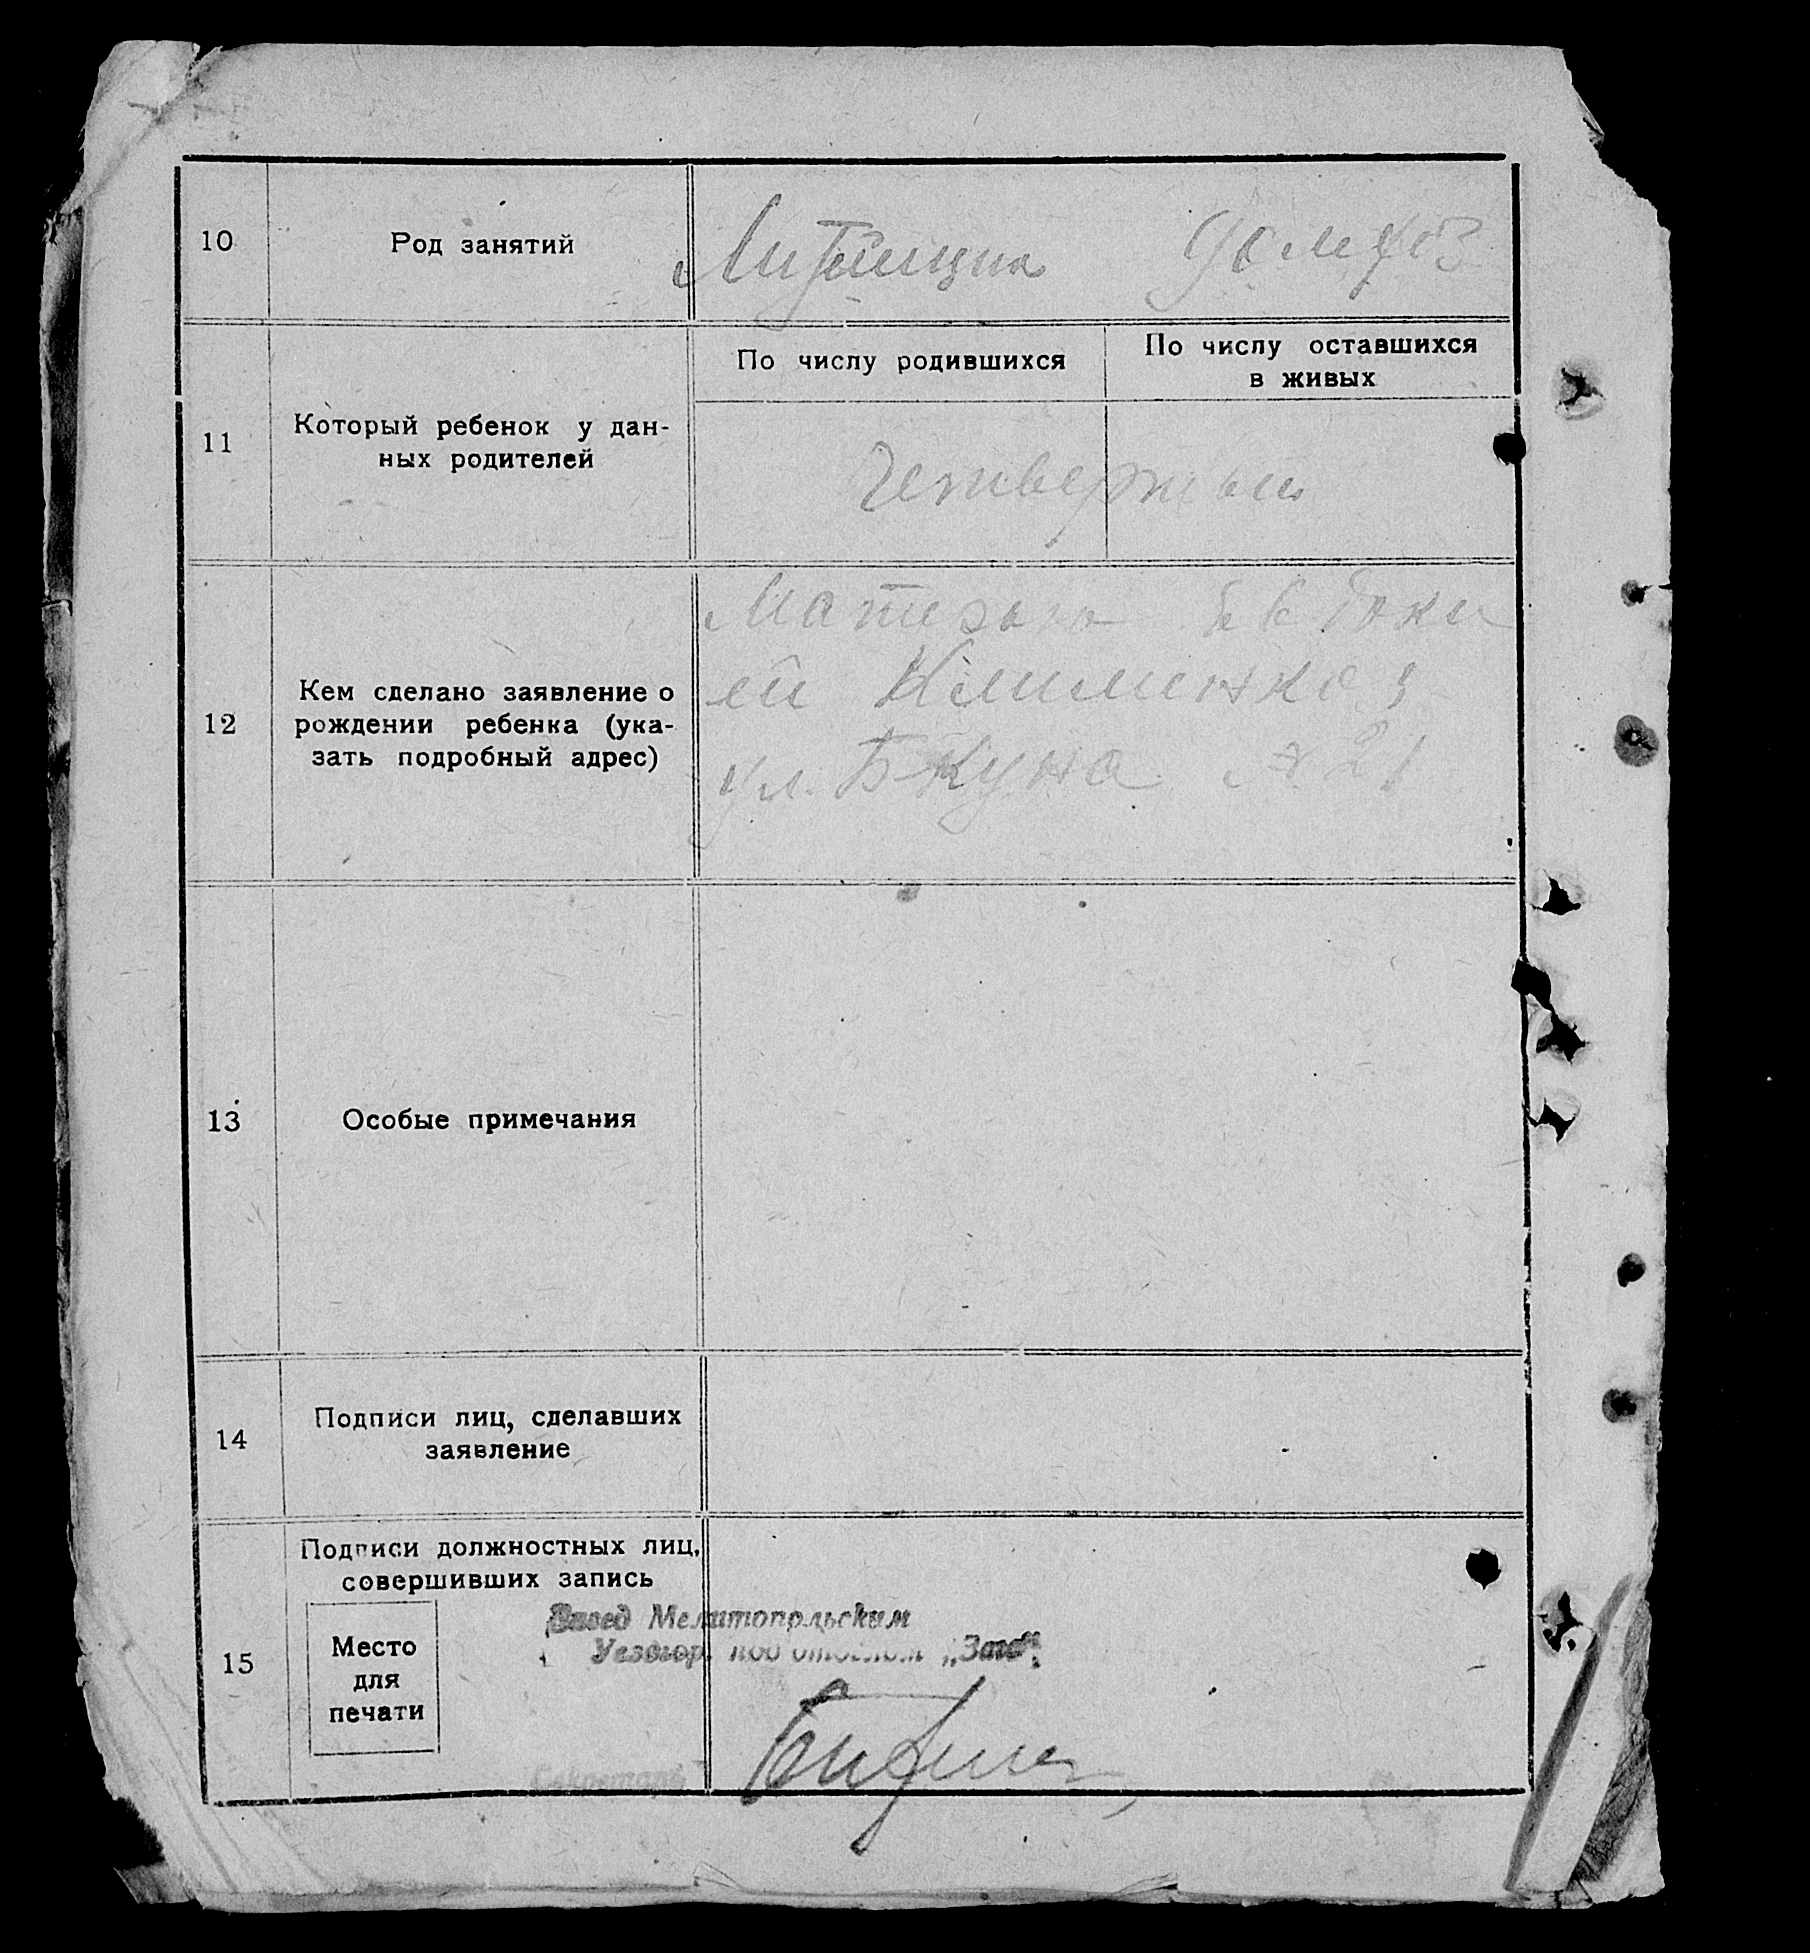 10
Род занятий
Литейщик домхоз
11
Который ребенок у дан-
ных родителей
По числу родившихся
По числу оставшихся
в живых
Четвертый
12
Кем сделано заявление о
рождении ребенка (ука-
зать подробный адрес)
Матерью Евдоки
ей
ул. № 21
13
Особые примечания
14
Подписи лиц, сделавших
заявление
15
Подписи должностных лиц,
совершивших запись
Место
для
печати
Завед Мелитопольским
под отделом „Загс"
Секретарь